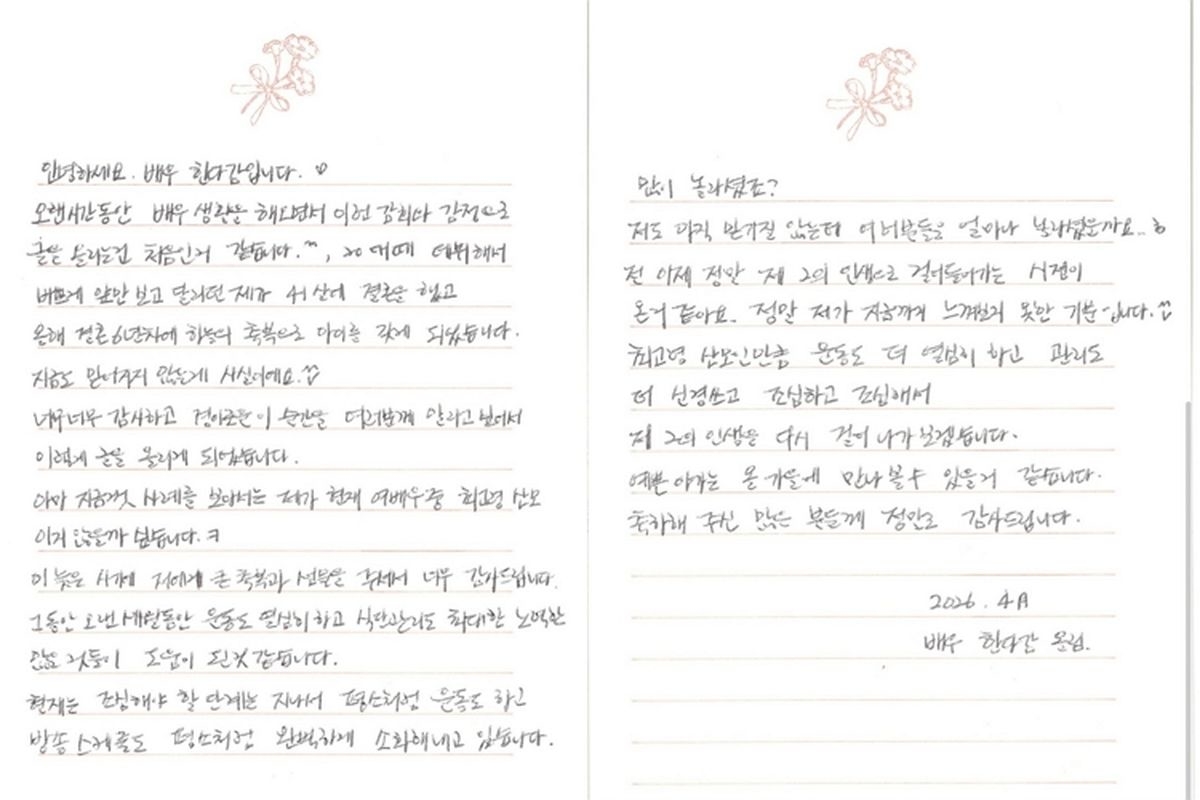 안녕하세요. 배우 한다감입니다. ♡
오랜시간동안 배우 생활은 해오면서 이런 감회와 감정으로
글은 올리는건 처음인거 같습니다.^^, 20대때 데뷔해서
바쁘게 앞만 보고 달리던 제가 41살에 결혼은 했고
올해 결혼 6년차에 하늘의 축복으로 아이를 갖게 되었습니다.
지금도 믿어지지 않는게 사실이에요.
너무너무 감사하고 경이로운 이 순간을 여러분께 알리고 싶어서
이렇게 글을 올리게 되었습니다.
아마 지금껏 사례를 보아서는 제가 현재 여배우중 최고령 산모
이지 않을까 싶습니다. ㅋ
이 늦은 시기에 저에게 큰 축복과 선물을 주셔서 너무 감사드립니다.
그동안 오랜세월동안 운동도 열심히 하고 식단관리도 최대한 노력한
많은 것들이 도움이 된것 같습니다.
현재는 조심해야 할 단계는 지나서 평소처럼 운동도 하고
방송 스케줄도 평소처럼 완벽하게 소화해내고 있습니다.
많이 놀라셨죠?
저도 아직 믿겨질 않는데 여러분들은 얼마나 놀라셨을까요.. ㅎ
전 이제 정말 제 2의 인생으로 걸어들어가는 시점이
온거 같아요. 정말 저가 지금까지 느껴보지 못한 기분입니다.
최고령 산모인만큼 운동도 더 열심히 하고 관리도
더 신경쓰고 조심하고 조심해서
제 2의 인생을 다시 걸어 나가보겠습니다.
예쁜 아가는 올 가을에 만나 볼 수 있을거 같습니다.
축하해 주신 많은 분들께 정말로 감사드립니다.
2026. 4月
배우 한다감 올림.